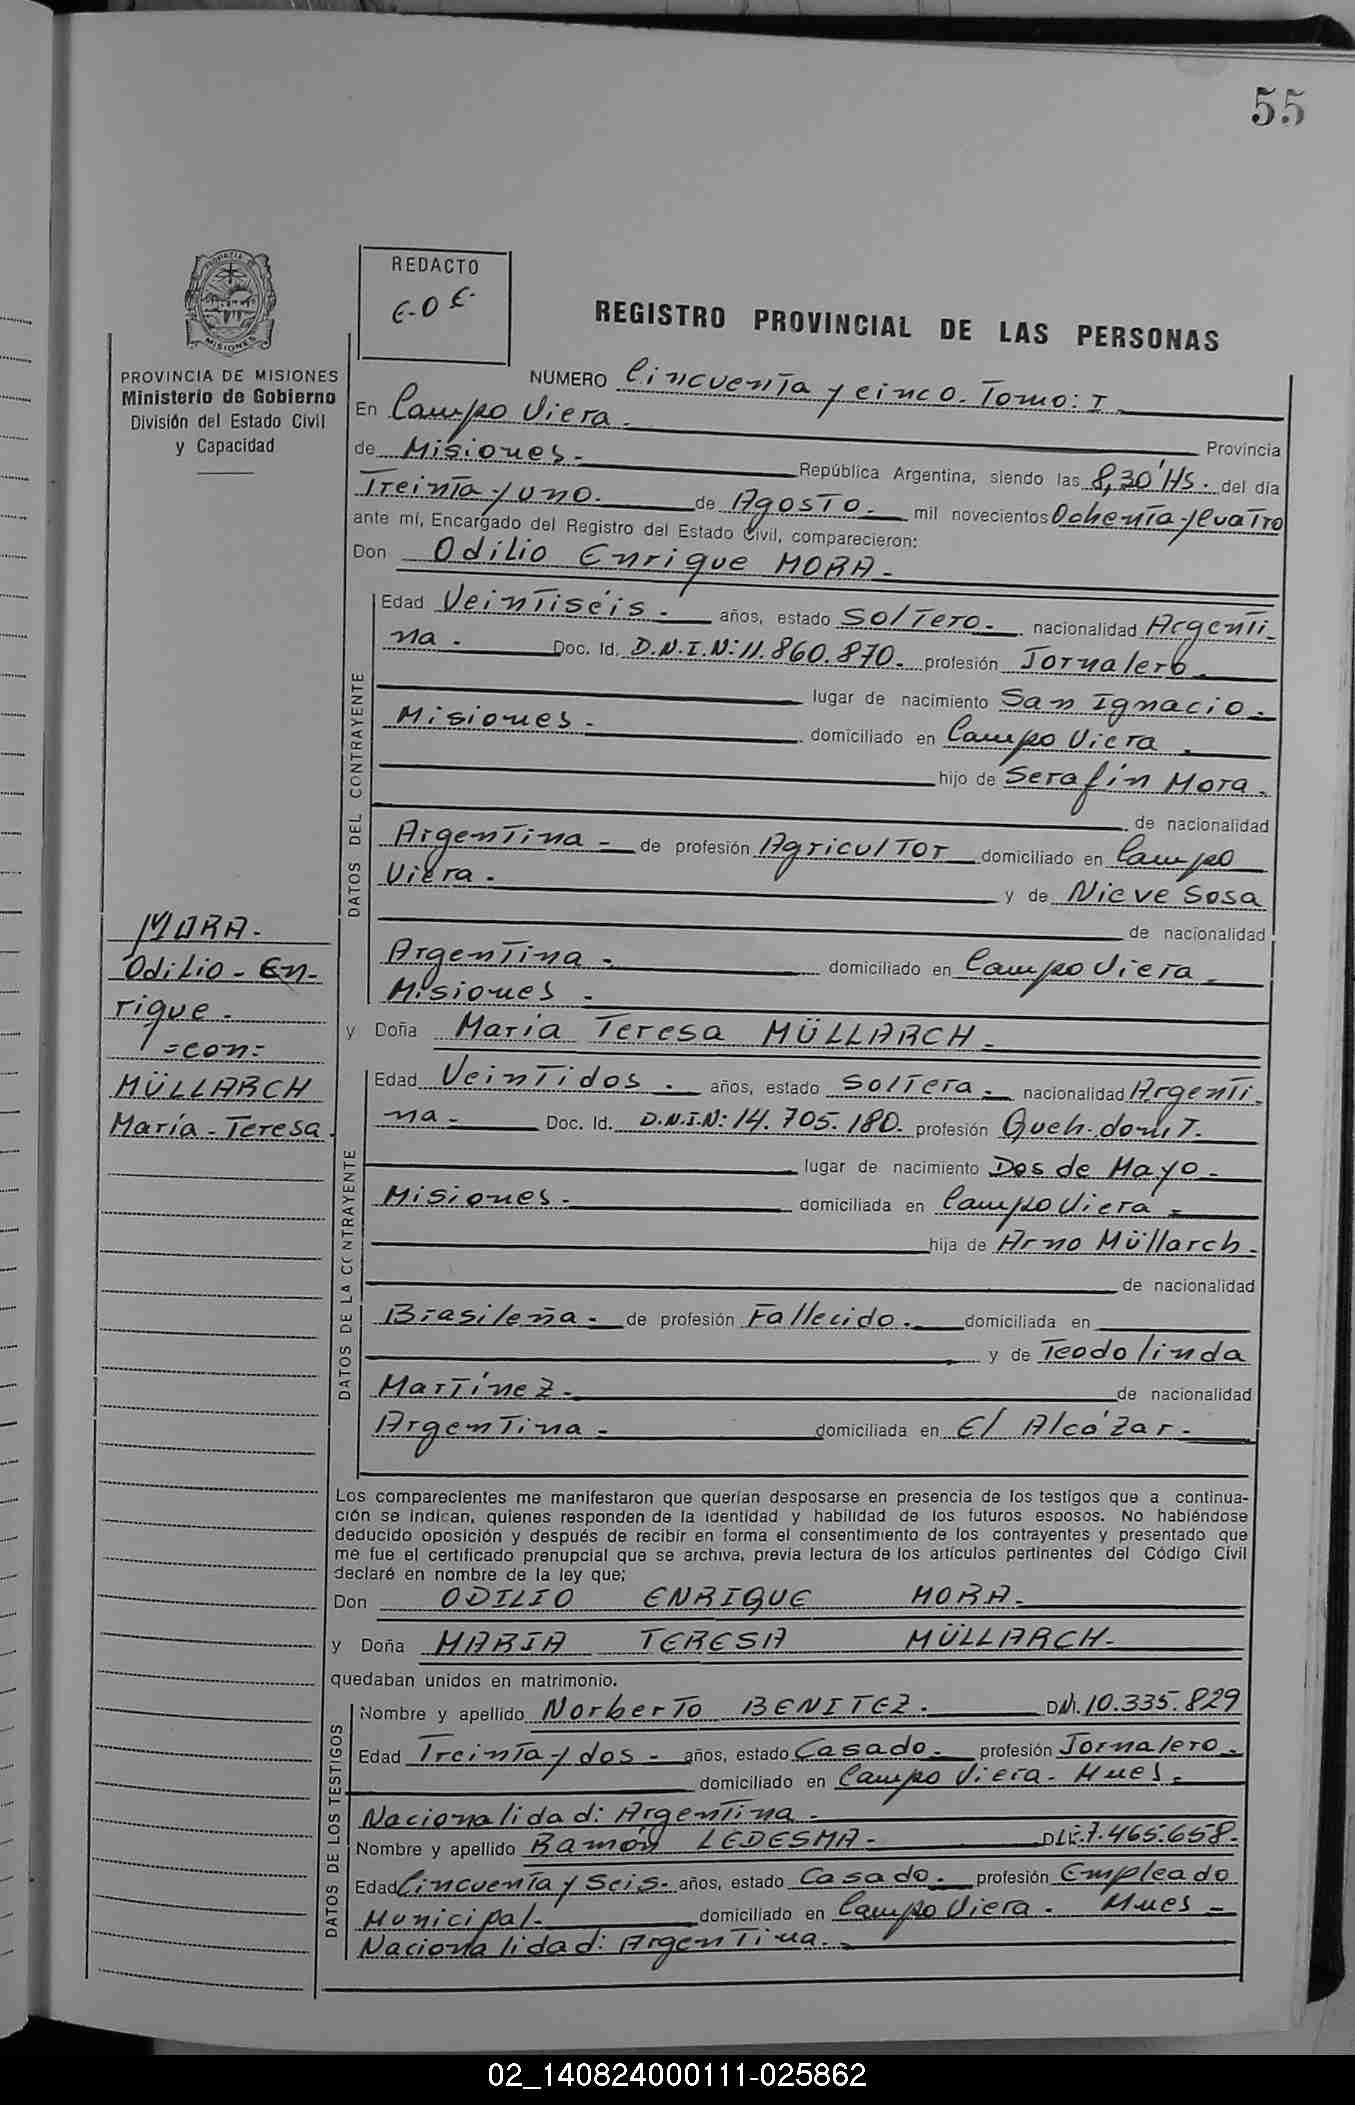 55
PROVINCIA DE MISIONES
REDACTO
E-O E-
REGISTRO PROVINCIAL DE LAS PERSONAS
PROVINCIA DE MISIONES
Ministerio de Gobierno
División del Estado Civil
y Capacidad
NUMERO Cincuenta y cinco. Tomo: I
En Campo Viera. Provincia
de Misiones.- República Argentina, siendo las 8,30 Hs. del día
Treinta y uno. de Agosto.- mil novecientos Ochenta y Cuatro
ante mí, Encargado del Registro del Estado Civil, comparecieron:
Don Odilio Enrique MORA.-
DATOS DEL CONTRAYENTE
Edad Veintiséis.- años, estado Soltero.- nacionalidad Argenti-
na.- Doc. Id. D.N.I.N: 11.860.870.- profesión Jornalero.
lugar de nacimiento San Ignacio.-
Misiones.- domiciliado en Campo Viera.
hijo de Serafín Mora.
de nacionalidad
Argentina.- de profesión Agricultor domiciliado en Campo
Viera.- y de Nieve Sosa
de nacionalidad
Argentina.- domiciliado en Campo Viera.
Misiones.-
MORA.-
Odilio-En-
rique.-
=con:
MÜLLARCH
María-Teresa.
y Doña María Teresa MÜLLARCH.-
DATOS DE LA CONTRAYENTE
Edad Veintidos.- años, estado Soltera.- nacionalidad Argenti-
na.- Doc. Id. D.N.I.N: 14.705.180.- profesión Queh. domt.
lugar de nacimiento Dos de Mayo.-
Misiones.- domiciliada en Campo Viera.-
hija de Arno Müllarch.
de nacionalidad
Brasileña.- de profesión Fallecido.- domiciliada en
y de Teodolinda
Martínez.- de nacionalidad
Argentina.- domiciliada en El Alcázar.-
Los comparecientes me manifestaron que querían desposarse en presencia de los testigos que a continua-
ción se indican, quienes responden de la identidad y habilidad de los futuros esposos. No habiéndose
deducido oposición y después de recibir en forma el consentimiento de los contrayentes y presentado que
me fue el certificado prenupcial que se archiva, previa lectura de los artículos pertinentes del Código Civil
declaré en nombre de la ley que;
Don ODILIO ENRIQUE MORA.-
y Doña MARIA TERESA MÜLLARCH.-
quedaban unidos en matrimonio.
DATOS DE LOS TESTIGOS
Nombre y apellido Norberto BENITEZ.- DNI. 10.335.829
Edad Treinta y dos.- años, estado Casado.- profesión Jornalero.-
domiciliado en Campo Viera. Mnes.-
Nacionalidad: Argentina.-
Nombre y apellido Ramón LEDESMA.- DLE. 7.465.658.-
Edad Cincuenta y Seis.- años, estado Casado.- profesión Empleado
Municipal.- domiciliado en Campo Viera. Mnes.-
Nacionalidad: Argentina.-
02_140824000111-025862